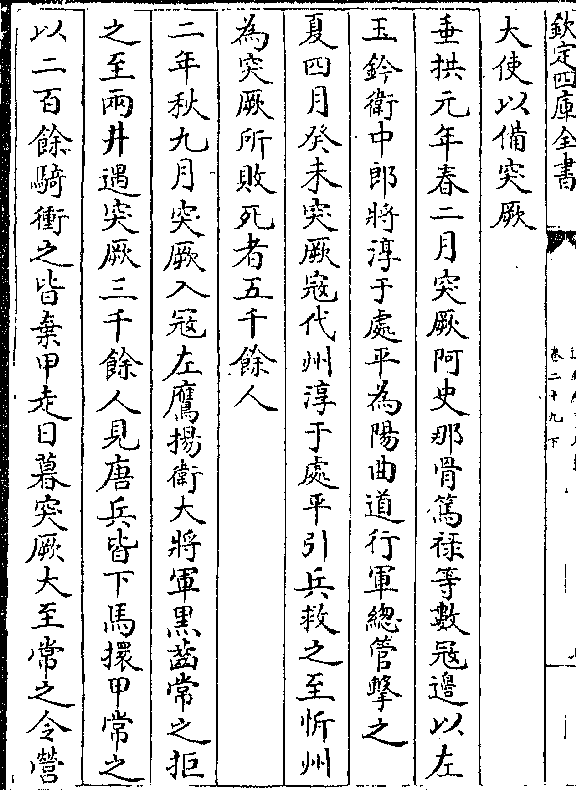 欽定四庫全書
卷二十九下
大使以備突厥
垂拱元年春二月突厥阿史那骨篤祿等數冦邊以左
玉鈐衛中郎將淳于處平為陽曲道行軍總管擊之
夏四月癸未突厥冦代州淳于處平引兵救之至忻州
為突厥所敗死者五千餘人
二年秋九月突厥入冦左鷹揚衛大將軍黑齒常之拒
之至兩井遇突厥三千餘人見唐兵皆下馬擐甲常之
以二百餘騎衝之皆棄甲走日暮突厥大至常之令營